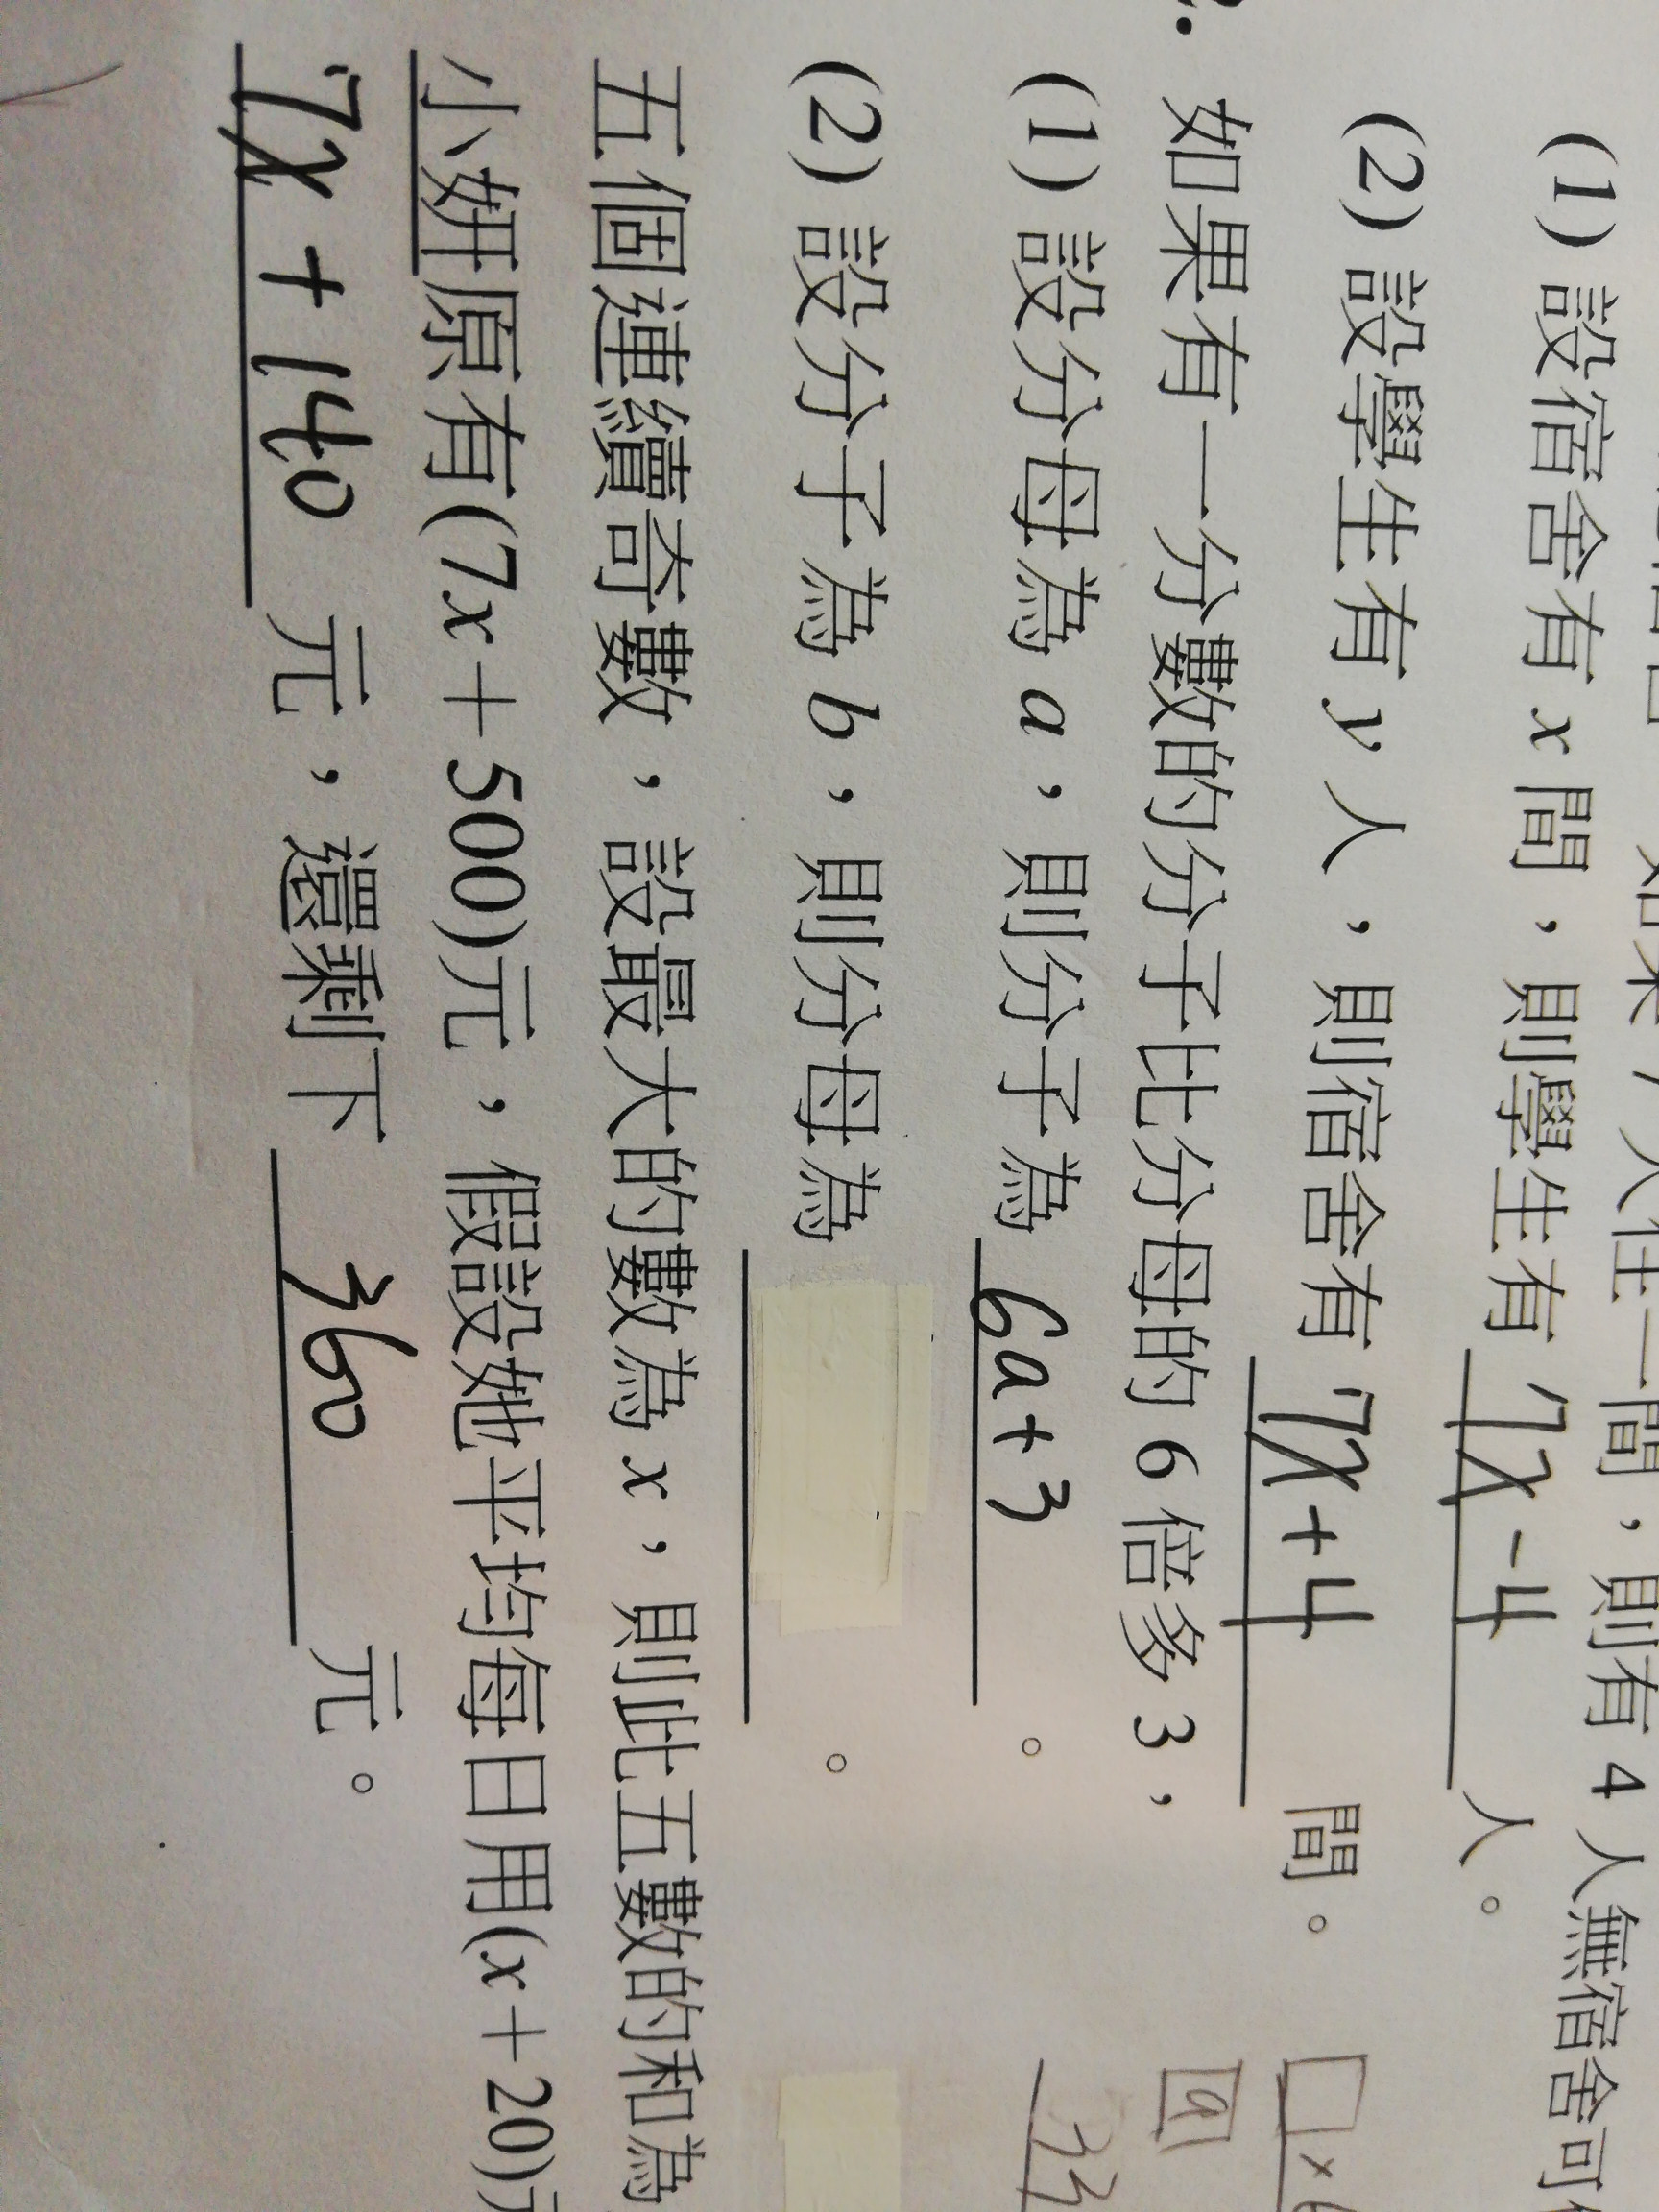 如果 7 人住一間，則有 4 人無宿舍可
(1) 設宿舍有 x 間，則學生有 7x-4 人。
(2) 設學生有 y 人，則宿舍有 7x+4 間。
2. 如果有一分數的分子比分母的 6 倍多 3，
(1) 設分母為 a，則分子為 6a+3 。
(2) 設分子為 b，則分母為 。
五個連續奇數，設最大的數為 x，則此五數的和為
小妍原有(7x＋500)元，假設她平均每日用(x＋20)元
7x+140 元，還剩下 360 元。
□×
a
33